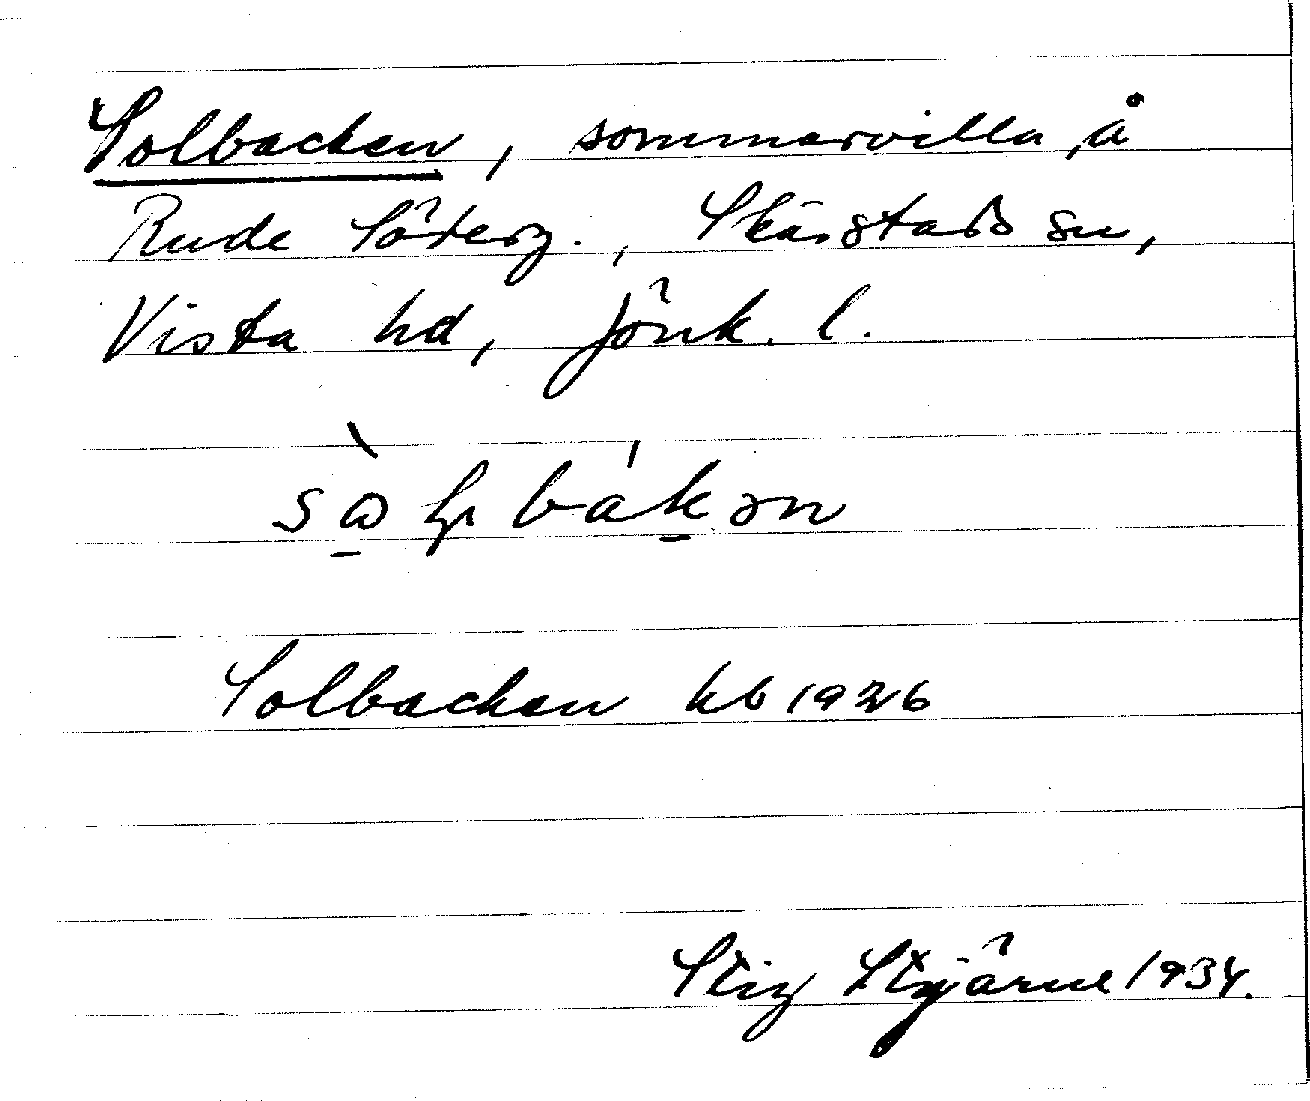 Solbacken, sommarvilla, å
Rude Söderg., Skärstads sn,
Vista hd, Jönk. l.
Solbacken kb 1926
Stig Stjärne 1934.